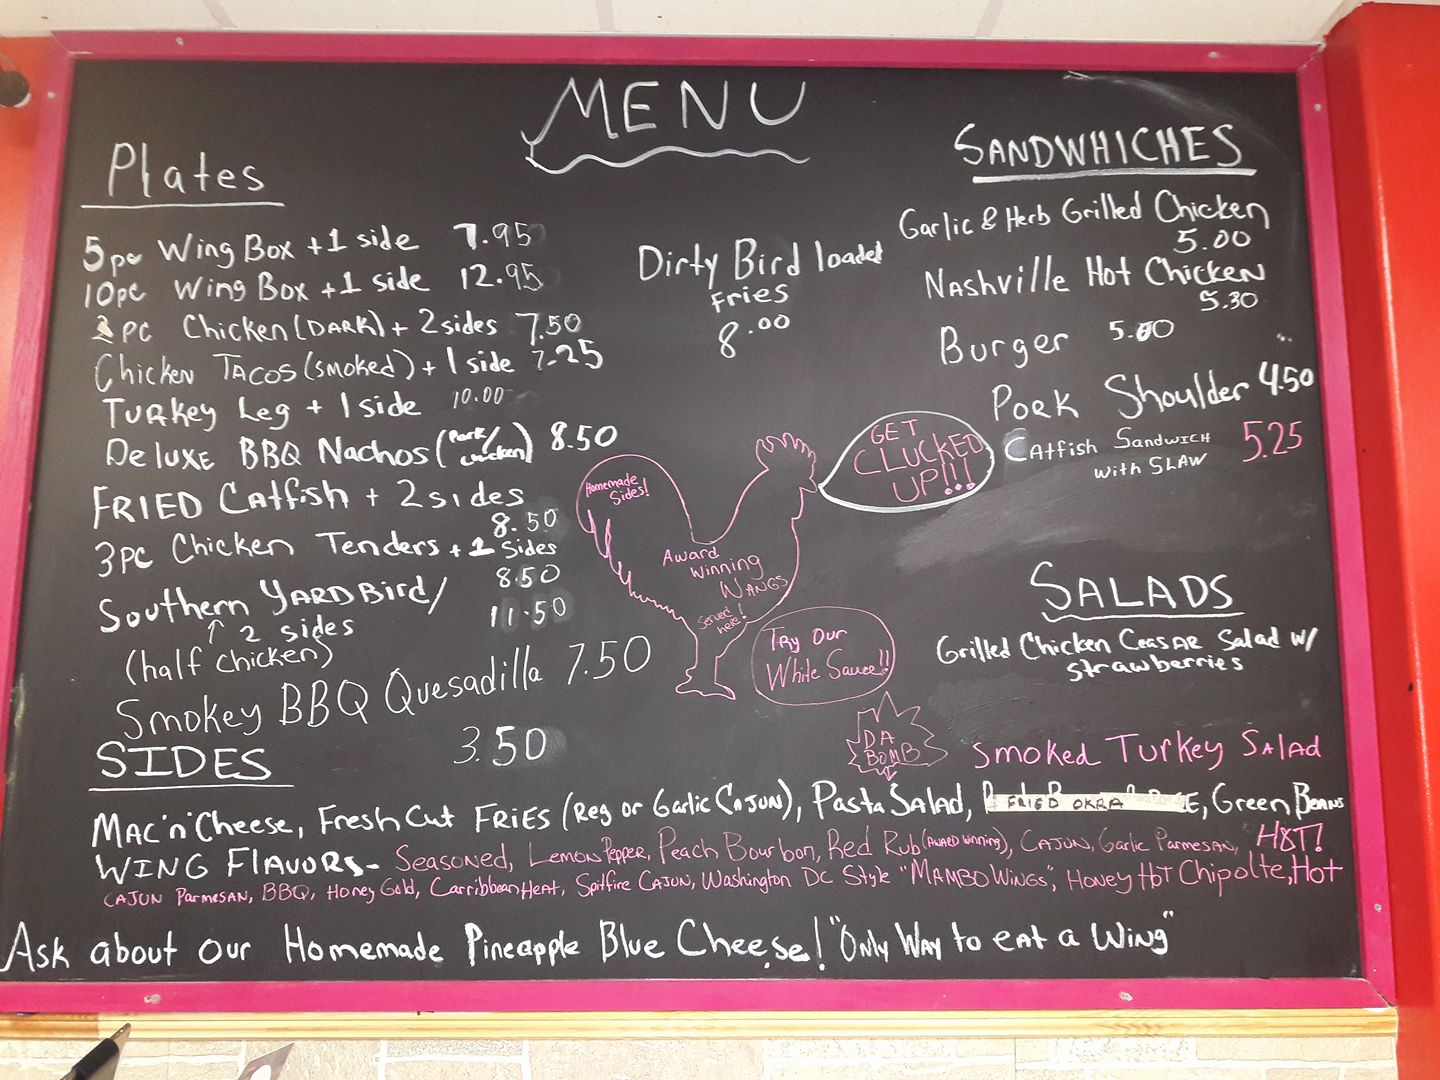 MENU
Plates
5pc Wing Box +1 side 7.95
10pc Wing Box +1 side 12.95
2 PC Chicken (DARK) + 2 sides 7.50
Chicken TACOS (smoked) + 1 side 7.25
TURKey Leg + 1 side 10.00
DeLUXE BBQ Nachos (Pork/
chicken) 8.50
FRIED Catfish + 2 sides
8.50
3PC Chicken Tenders + 1 sides
8.50
Southern YARDBird/ 11.50
↑ 2 sides
(half chicken)
Smokey BBQ Quesadilla 7.50
Dirty Bird loaded
fries
8.00
SANDWHICHES
Garlic & Herb Grilled Chicken
5.00
Nashville Hot Chicken
5.30
Burger 5.00
Pork Shoulder 4.50
Catfish Sandwich
with SLAW 5.25
GET
CLUCKED
UP!!!
Homemade
Sides!
Award
Winning
WANGS
Served
here!
Try Our
White Sauce!!
SALADS
Grilled Chicken Ceasar Salad w/
strawberries
DA
BOMB
Smoked Turkey Salad
SIDES 3.50
Mac'n'Cheese, Fresh Cut Fries (Reg or Garlic Cajun), Pasta Salad, FRIED OKRA, Green Beans
WING FLAVORS- Seasoned, Lemon Pepper, Peach Bourbon, Red Rub (AWARD WINNING), CAJUN, Garlic Parmesan, HOT!
CAJUN Parmesan, BBQ, Honey Gold, Carribbean Heat, Spitfire Cajun, Washington DC Style "MAMBO WINGS", Honey Hot Chipolte, Hot
Ask about our Homemade Pineapple Blue Cheese! "Only Way to eat a Wing"